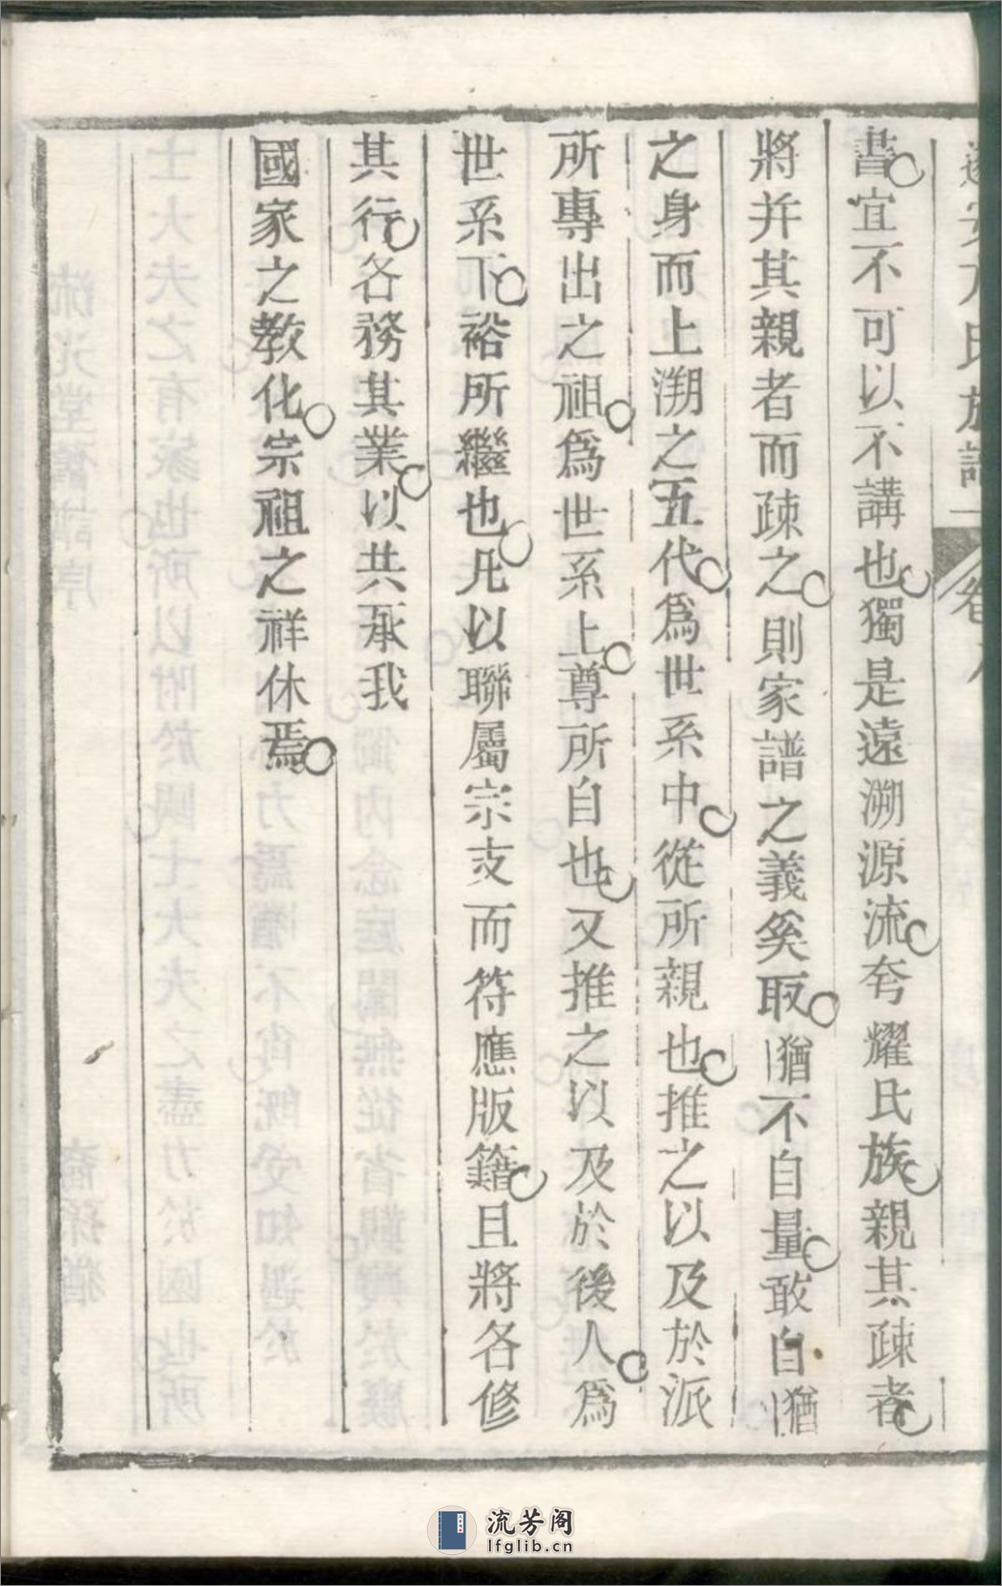 方氏族譜
書宜不可以不講也獨是遠溯源流夸耀氏族親其疎者
將并其親者而疎之則家譜之義奚取猶不自量敢自猶
之身而上溯之五代爲世系中從所親也推之以及於派
所專出之祖爲世系上尊所自也又推之以及於後人爲
世系下裕所繼也凡以聯屬宗支而符應版籍且將各修
其行各務其業以共承我
國家之教化宗祖之祥休焉
流芳阁
lfglib.cn